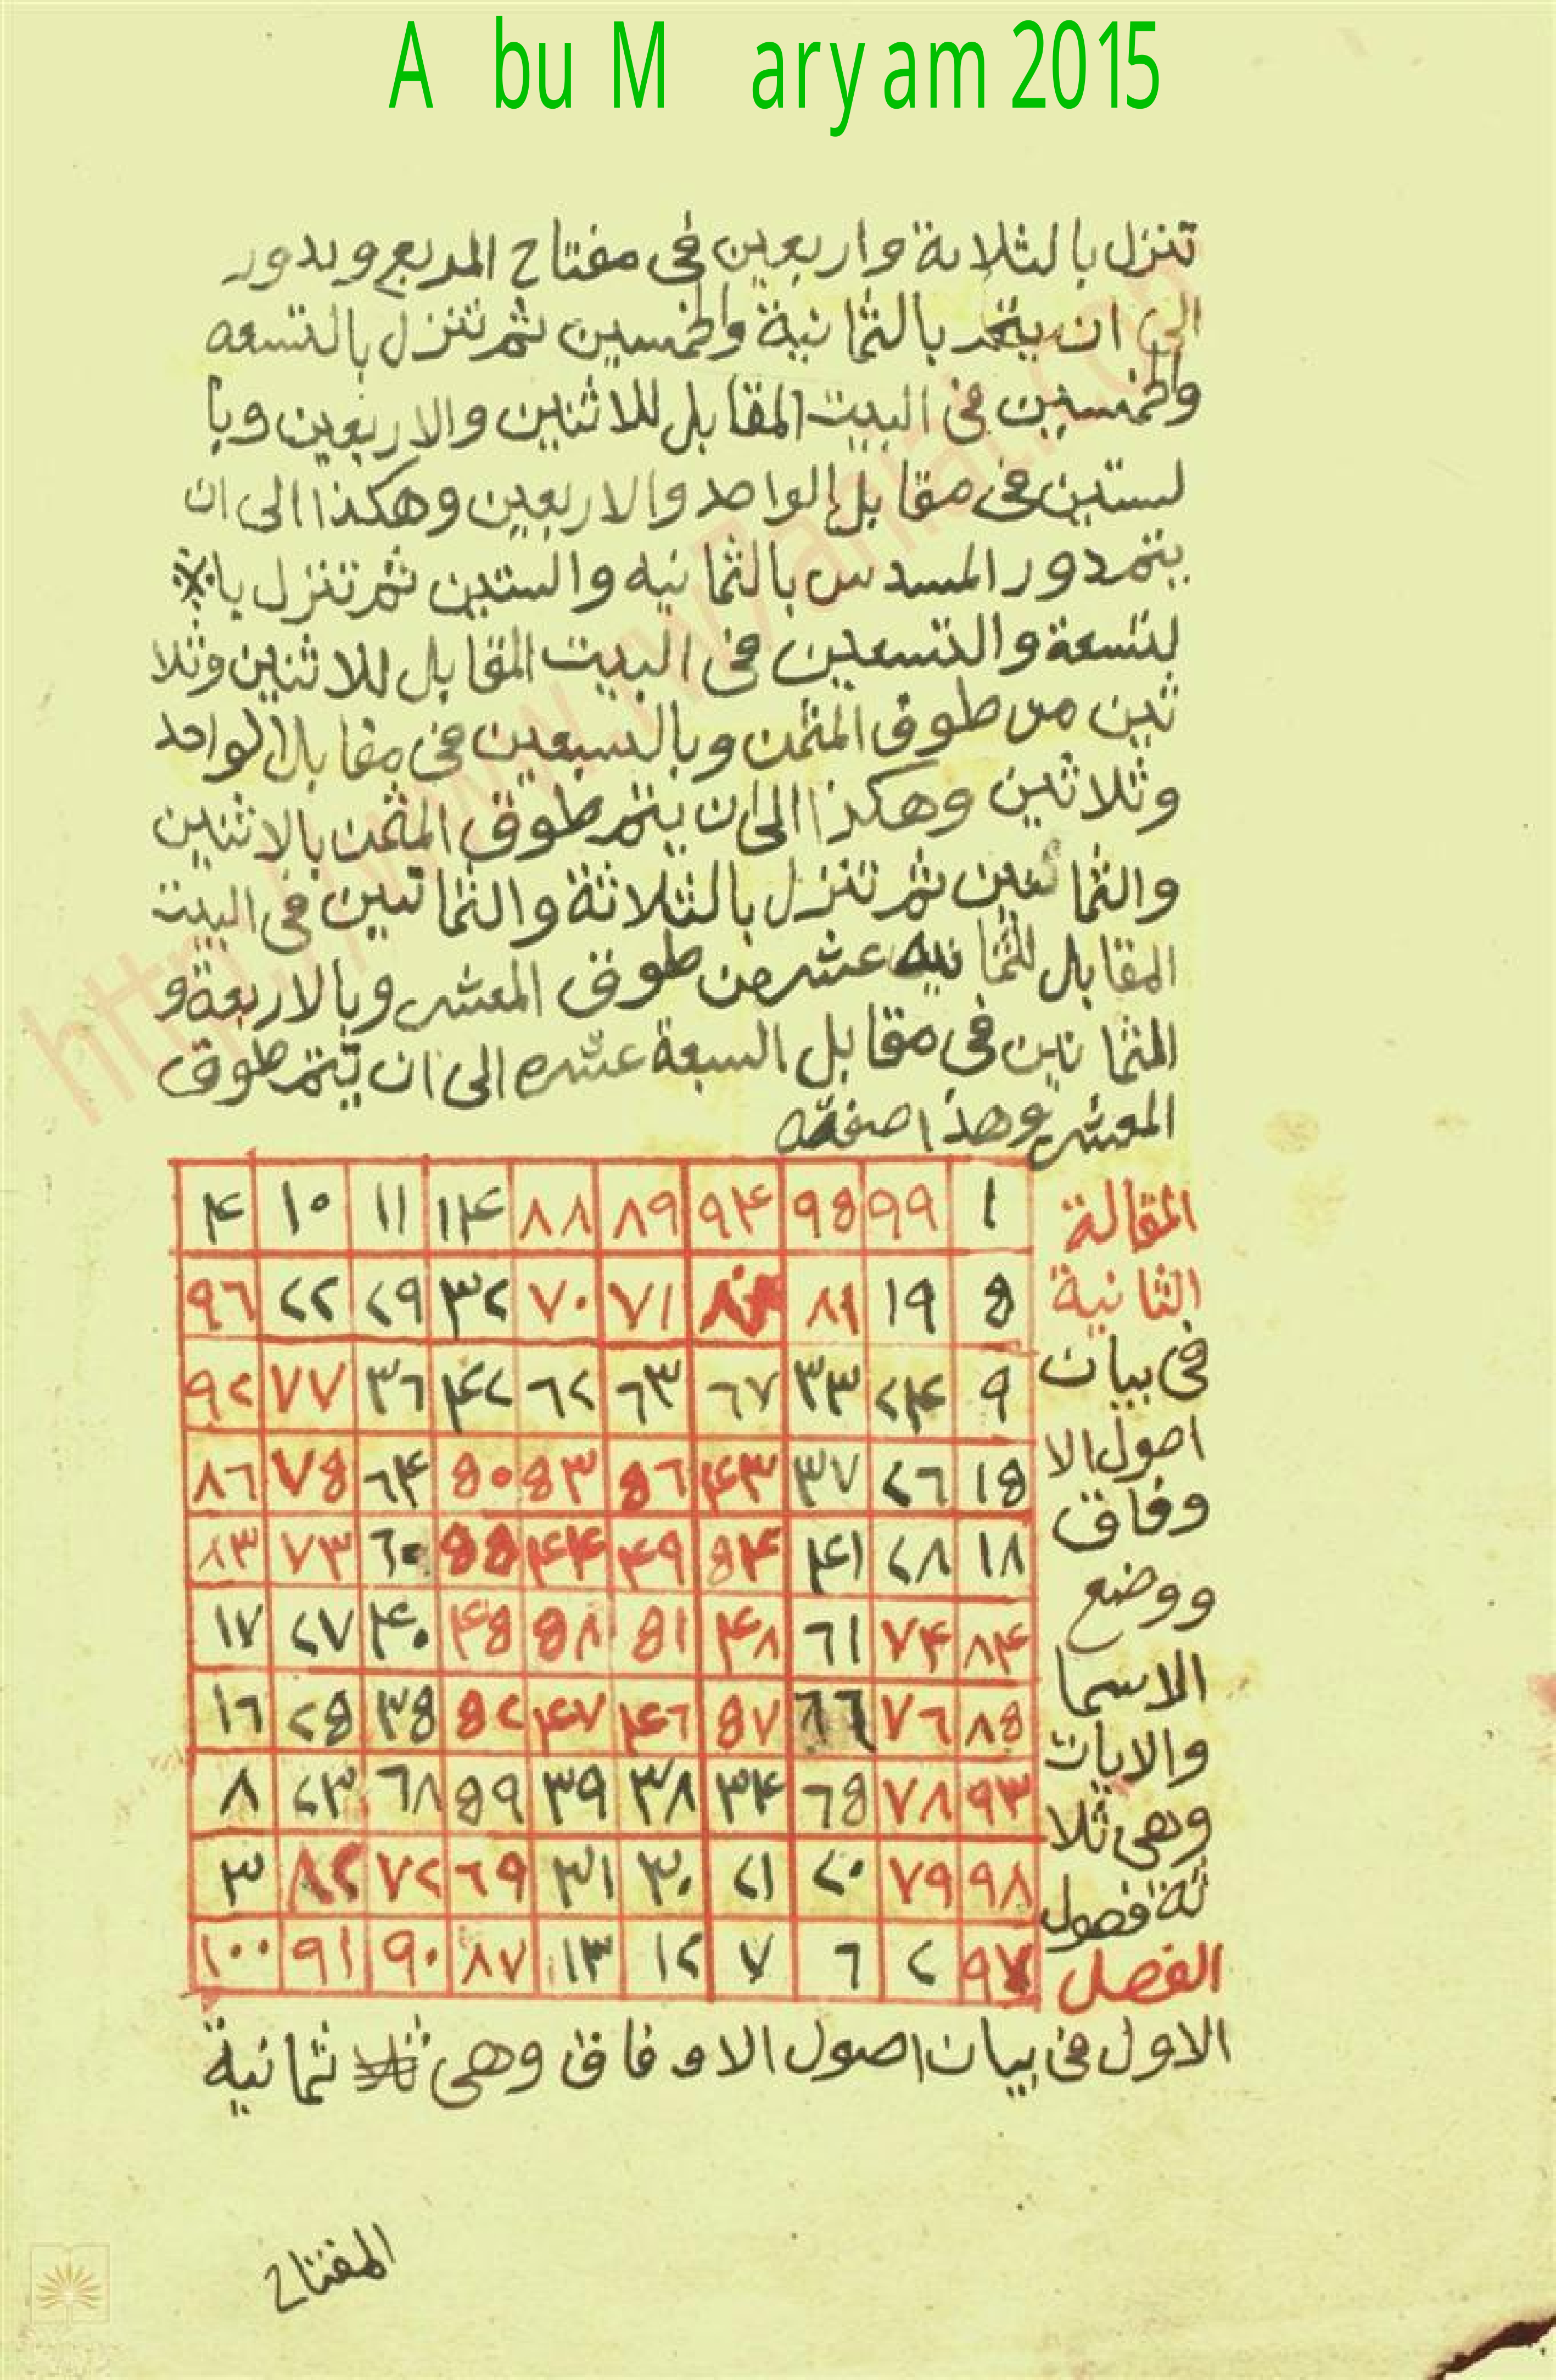 A bu M aryam 2015
تنزل بالثلاثة واربعين فى مفتاح المربع ويدور
الى ان يتم بالثمانية والخمسين ثم تنزل بالتسعه
والخمسين فى البيت المقابل للاثنين والاربعين وبا
لستين فى مقابل الواحد والاربعين وهكذا الى ان
يتم دور المسدس بالثمانيه والستين ثم تنزل با
لتسعة والتسعين فى البيت المقابل للاثنين وثلا
ثين من طوق المثمن وبالسبعين فى مقابل الواحد
وثلاثين وهكذا الى ان يتم طوق المثمن بالاثنين
والثمانين ثم تنزل بالثلاثة والثمانين فى البيت
المقابل للثمانيه عشر من طوق المعشر وبالاربعة و
الثمانين فى مقابل السبعة عشره الى ان يتم طوق
المعشر وهذا صفته
١ ٩٩ ٩٥ ٩٤ ٨٩ ٨٨ ١٤ ١١ ١٠ ٤
٥ ١٩ ٨١ ٧١ ٧٠ ٣٢ ٢٩ ٢٢ ٩٦
٩ ٢٤ ٣٣ ٦٧ ٦٣ ٦٢ ٤٢ ٣٦ ٧٧ ٩٢
١٥ ٢٦ ٣٧ ٤٣ ٥٦ ٥٣ ٥٠ ٦٤ ٧٥ ٨٦
١٨ ٢٨ ٤١ ٥٤ ٤٩ ٤٤ ٥٥ ٦٠ ٧٣ ٨٣
٨٤ ٧٤ ٦١ ٤٨ ٥١ ٥٨ ٤٥ ٤٠ ٢٧ ١٧
٨٥ ٧٦ ٦٦ ٥٧ ٤٦ ٤٧ ٥٢ ٣٥ ٢٥ ١٦
٩٣ ٧٨ ٦٥ ٣٤ ٣٨ ٣٩ ٥٩ ٦٨ ٢٣ ٨
٩٨ ٧٩ ٢٠ ٢١ ٣٠ ٣١ ٦٩ ٧٢ ٨٢ ٣
٩٧ ٢ ٦ ٧ ١٢ ١٣ ٨٧ ٩٠ ٩١ ١٠٠
المقالة
الثانية
فى بيان
اصول الا
وفاق
ووضع
الاسما
والايات
وهى ثلا
ثة فصول
الفصل
الاول فى بيان اصول الاوفاق وهى ثمانية
المفتاح